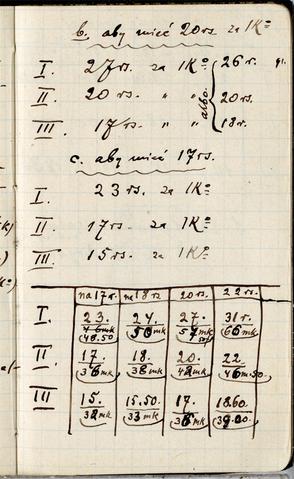 b. aby mieć 20 rs. za 1Ko
I. 27 rs. za 1Ko 26 r.
II. 20 rs. " " albo 20 rs.
III. 17 rs. " " 18 r.
c. aby mieć 17 rs.
I. 23 rs. za 1Ko
II. 17 rs. za 1Ko
III. 15 rs. za 1Ko
na 17 r. na 18 rs 20 rs. 22 rs.
I. 23. 24. 27. 31 r.
48.50 50 mk 57 mk 50 (66 mk)
II. 17. 18. 20. 22
(36 mk) (38 mk) (42 mk) (46 m. 50)
III 15. 15.50. 17. 18.60
(32 mk (33 mk (36 mk) (39.00.)